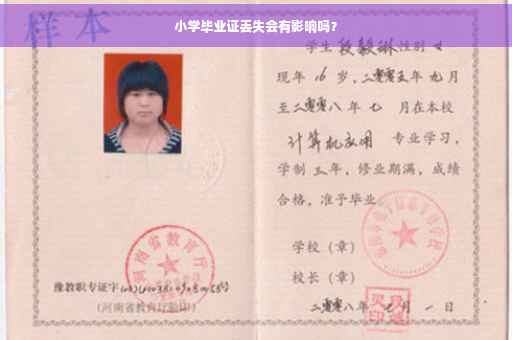 小学毕业证丢失会有影响吗？
样本
学生段毅琳性别女
现年16岁，二零零五年九月
至二零零八年七月在本校
计算机应用专业学习，
学制三年，修业期满，成绩
合格，准予毕业。
学校（章）
校长（章）
二零零八年七月一日
河南省教育厅
豫教职专证字
（河南省教育厅验印）